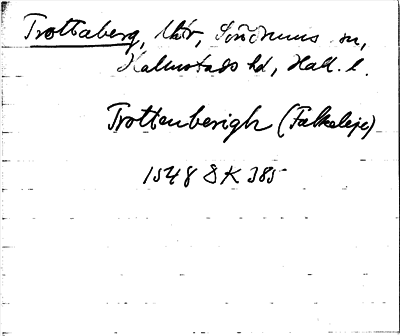 Trottaberg, Uktr, Söndrums sn,
Halmstads hd, Hall. l.
Trottenberigh (Falkeleje)
1548 SK 385